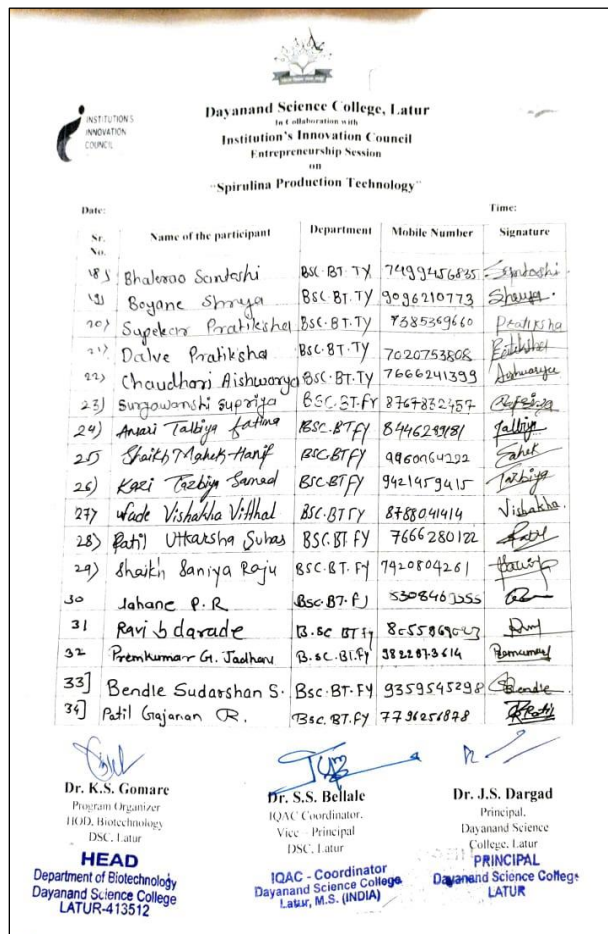 INSTITUTION'S
INNOVATION
COUNCIL
Dayanand Science College, Latur
In Collaboration with
Institution's Innovation Council
Entrepreneurship Session
on
"Spirulina Production Technology"
Date: Time:
Sr. No. Name of the participant Department Mobile Number Signature
18) Bhalerao Santoshi BSC.BT.TY 7499456835 Santoshi
19) Boyane Shreya BSC.BT.TY 9096210773
20) Supekar Pratiksha BSC.BT.TY 7385369660 Pratiksha
21) Dalve Pratiksha BSC.BT.TY 7020753808
22) Chaudhari Aishwarya BSC.BT.TY 7666241399 Aishwarya
23) Suryawanshi Supriya BSC.BT.FY 8767832457
24) Ansari Talbiya fatima BSC.BT FY 844629181 Talbiya
25 Shaikh Mahek Hanif BSC.BT FY
26) Kazi Tazbiya Samad BSC.BT FY 9421959415 Tazbiya
27) Wade Vishakha Vitthal BSC.BT FY 8788041414 Vishakha.
28) Patil Uttkarsha Suhas BSC.BT.FY 7666280122 Patil
29) Shaikh Saniya Raju BSC.BT.FY 7920804261
30 Jahane P.R Bsc.BT.FY
31 Ravi b darade B.sc BT Fy
32 Premkumar G. Jadhav B.sc.BT.Fy 9822873614
33] Bendle Sudarshan S. Bsc.BT.FY 9359545298 Bendle
34] Patil Gajanan R. Bsc.BT.FY 7796256878
Dr. K.S. Gomare
Program Organizer
HOD, Biotechnology
DSC, Latur
HEAD
Department of Biotechnology
Dayanand Science College
LATUR-413512
Dr. S.S. Bellale
IQAC Coordinator,
Vice - Principal
DSC, Latur
IQAC - Coordinator
Dayanand Science College
Latur, M.S. (INDIA)
Dr. J.S. Dargad
Principal,
Dayanand Science
College, Latur
PRINCIPAL
Dayanand Science College
LATUR